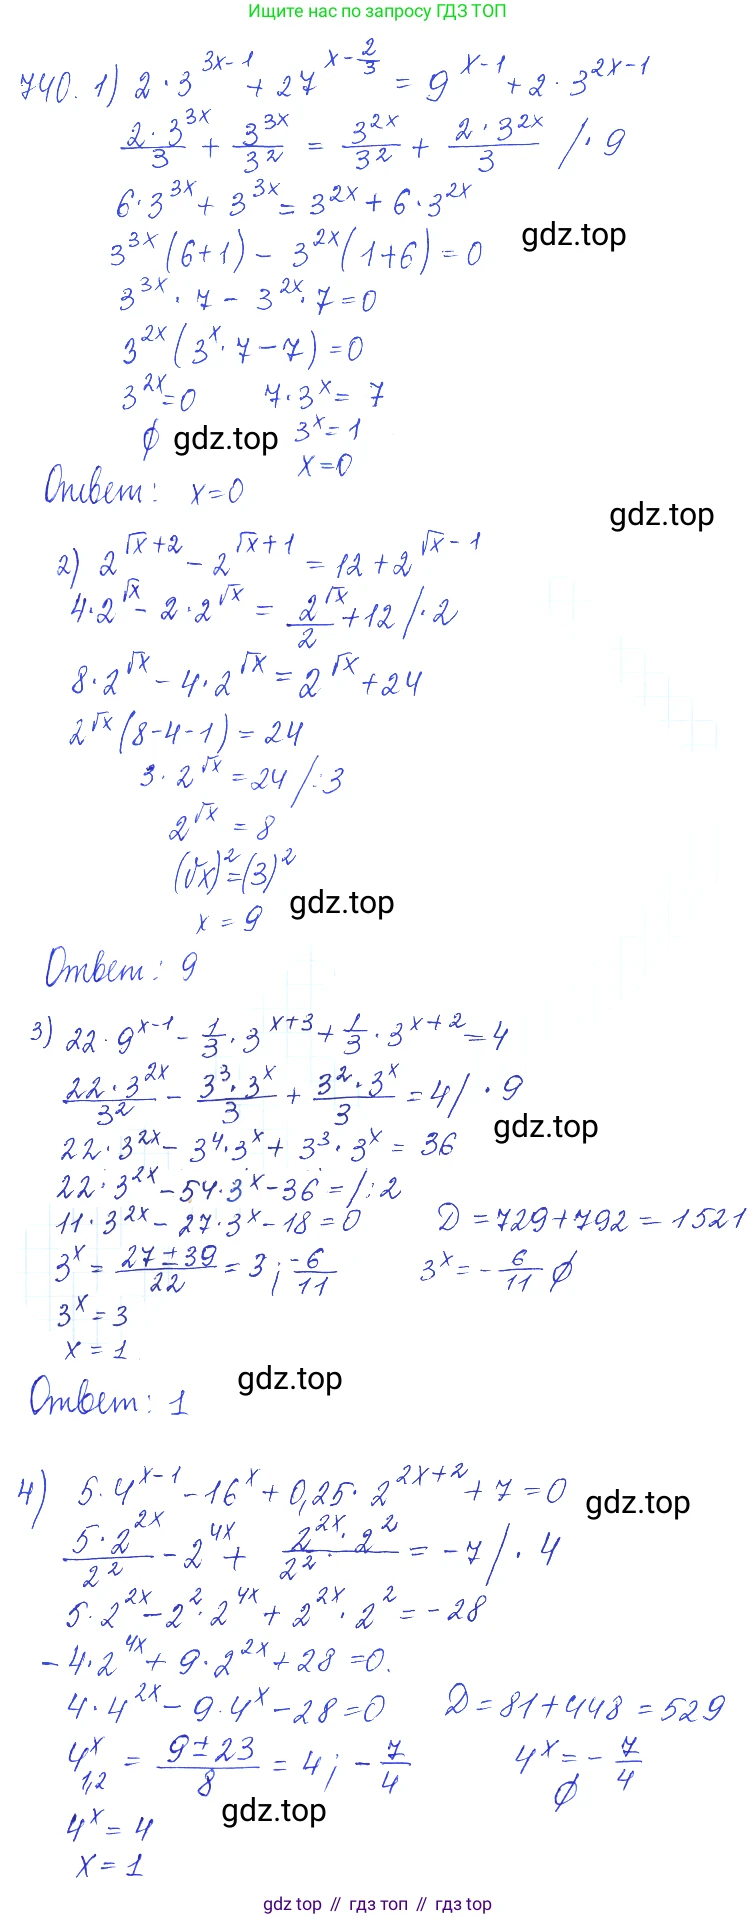 Ищите нас по запросу ГДЗ ТОП
740. 1) 2 · 3^(3x-1) + 27^(x-2/3) = 9^(x-1) + 2 · 3^(2x-1)
2·3^(3x)/3 + 3^(3x)/3^2 = 3^(2x)/3^2 + 2·3^(2x)/3 /· 9
6·3^(3x) + 3^(3x) = 3^(2x) + 6·3^(2x)
gdz.top
3^(3x) (6+1) - 3^(2x) (1+6) = 0
3^(3x) · 7 - 3^(2x) · 7 = 0
3^(2x) (3^x · 7 - 7) = 0
3^(2x) = 0 7·3^x = 7
∅ gdz.top 3^x = 1
x = 0
Ответ: x = 0
gdz.top
2) 2^(√x+2) - 2^(√x+1) = 12 + 2^(√x-1)
4·2^(√x) - 2·2^(√x) = 2^(√x)/2 + 12 /· 2
8·2^(√x) - 4·2^(√x) = 2^(√x) + 24
2^(√x) (8-4-1) = 24
3·2^(√x) = 24 /:3
2^(√x) = 8
(√x)^2 = (3)^2
x = 9 gdz.top
Ответ: 9
3) 22·9^(x-1) - 1/3 · 3^(x+3) + 1/3 · 3^(x+2) = 4
22·3^(2x)/3^2 - 3^3·3^x/3 + 3^2·3^x/3 = 4 /· 9
22·3^(2x) - 3^4·3^x + 3^3·3^x = 36 gdz.top
22·3^(2x) - 54·3^x - 36 = /:2
11·3^(2x) - 27·3^x - 18 = 0 D = 729 + 792 = 1521
3^x = (27±39)/22 = 3; -6/11 3^x = -6/11 ∅
3^x = 3
x = 1
gdz.top
Ответ: 1
4) 5·4^(x-1) - 16^x + 0,25·2^(2x+2) + 7 = 0 gdz.top
5·2^(2x)/2^2 - 2^(4x) + 2^(2x)·2^2/2^2 = -7 /· 4
5·2^(2x) - 2^2·2^(4x) + 2^(2x)·2^2 = -28
-4·2^(4x) + 9·2^(2x) + 28 = 0.
4·4^(2x) - 9·4^x - 28 = 0 D = 81 + 448 = 529
4^x 1,2 = (9±23)/8 = 4; -7/4 4^x = -7/4
∅
gdz.top
4^x = 4
x = 1
gdz top // гдз топ // гдз топ